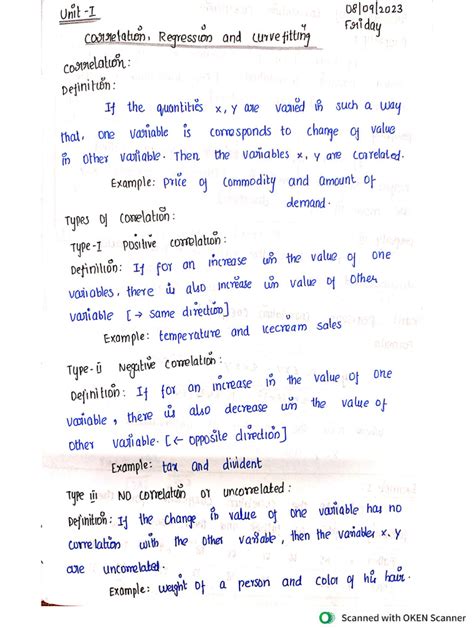 Unit-I
08/09/2023
Friday
Correlation, Regression and curve fitting
Correlation:
Definition:
If the quantities x, y are varied in such a way
that, one variable is corresponds to change of value
in other variable. Then the variables x, y are correlated.
Example: price of commodity and amount of
demand.
Types of correlation:
Type-I Positive correlation:
Definition: If for an increase in the value of one
variables, there is also increase in value of other
variable [→ same direction]
Example: temperature and icecream sales
Type-ii Negative correlation:
Definition: If for an increase in the value of one
variable, there is also decrease in the value of
other variable. [← opposite direction]
Example: tax and divident
Type iii No correlation or uncorrelated:
Definition: If the change in value of one variable has no
correlation with the other variable, then the variables x, y
are uncorrelated.
Example: weight of a person and color of his hair.
Scanned with OKEN Scanner